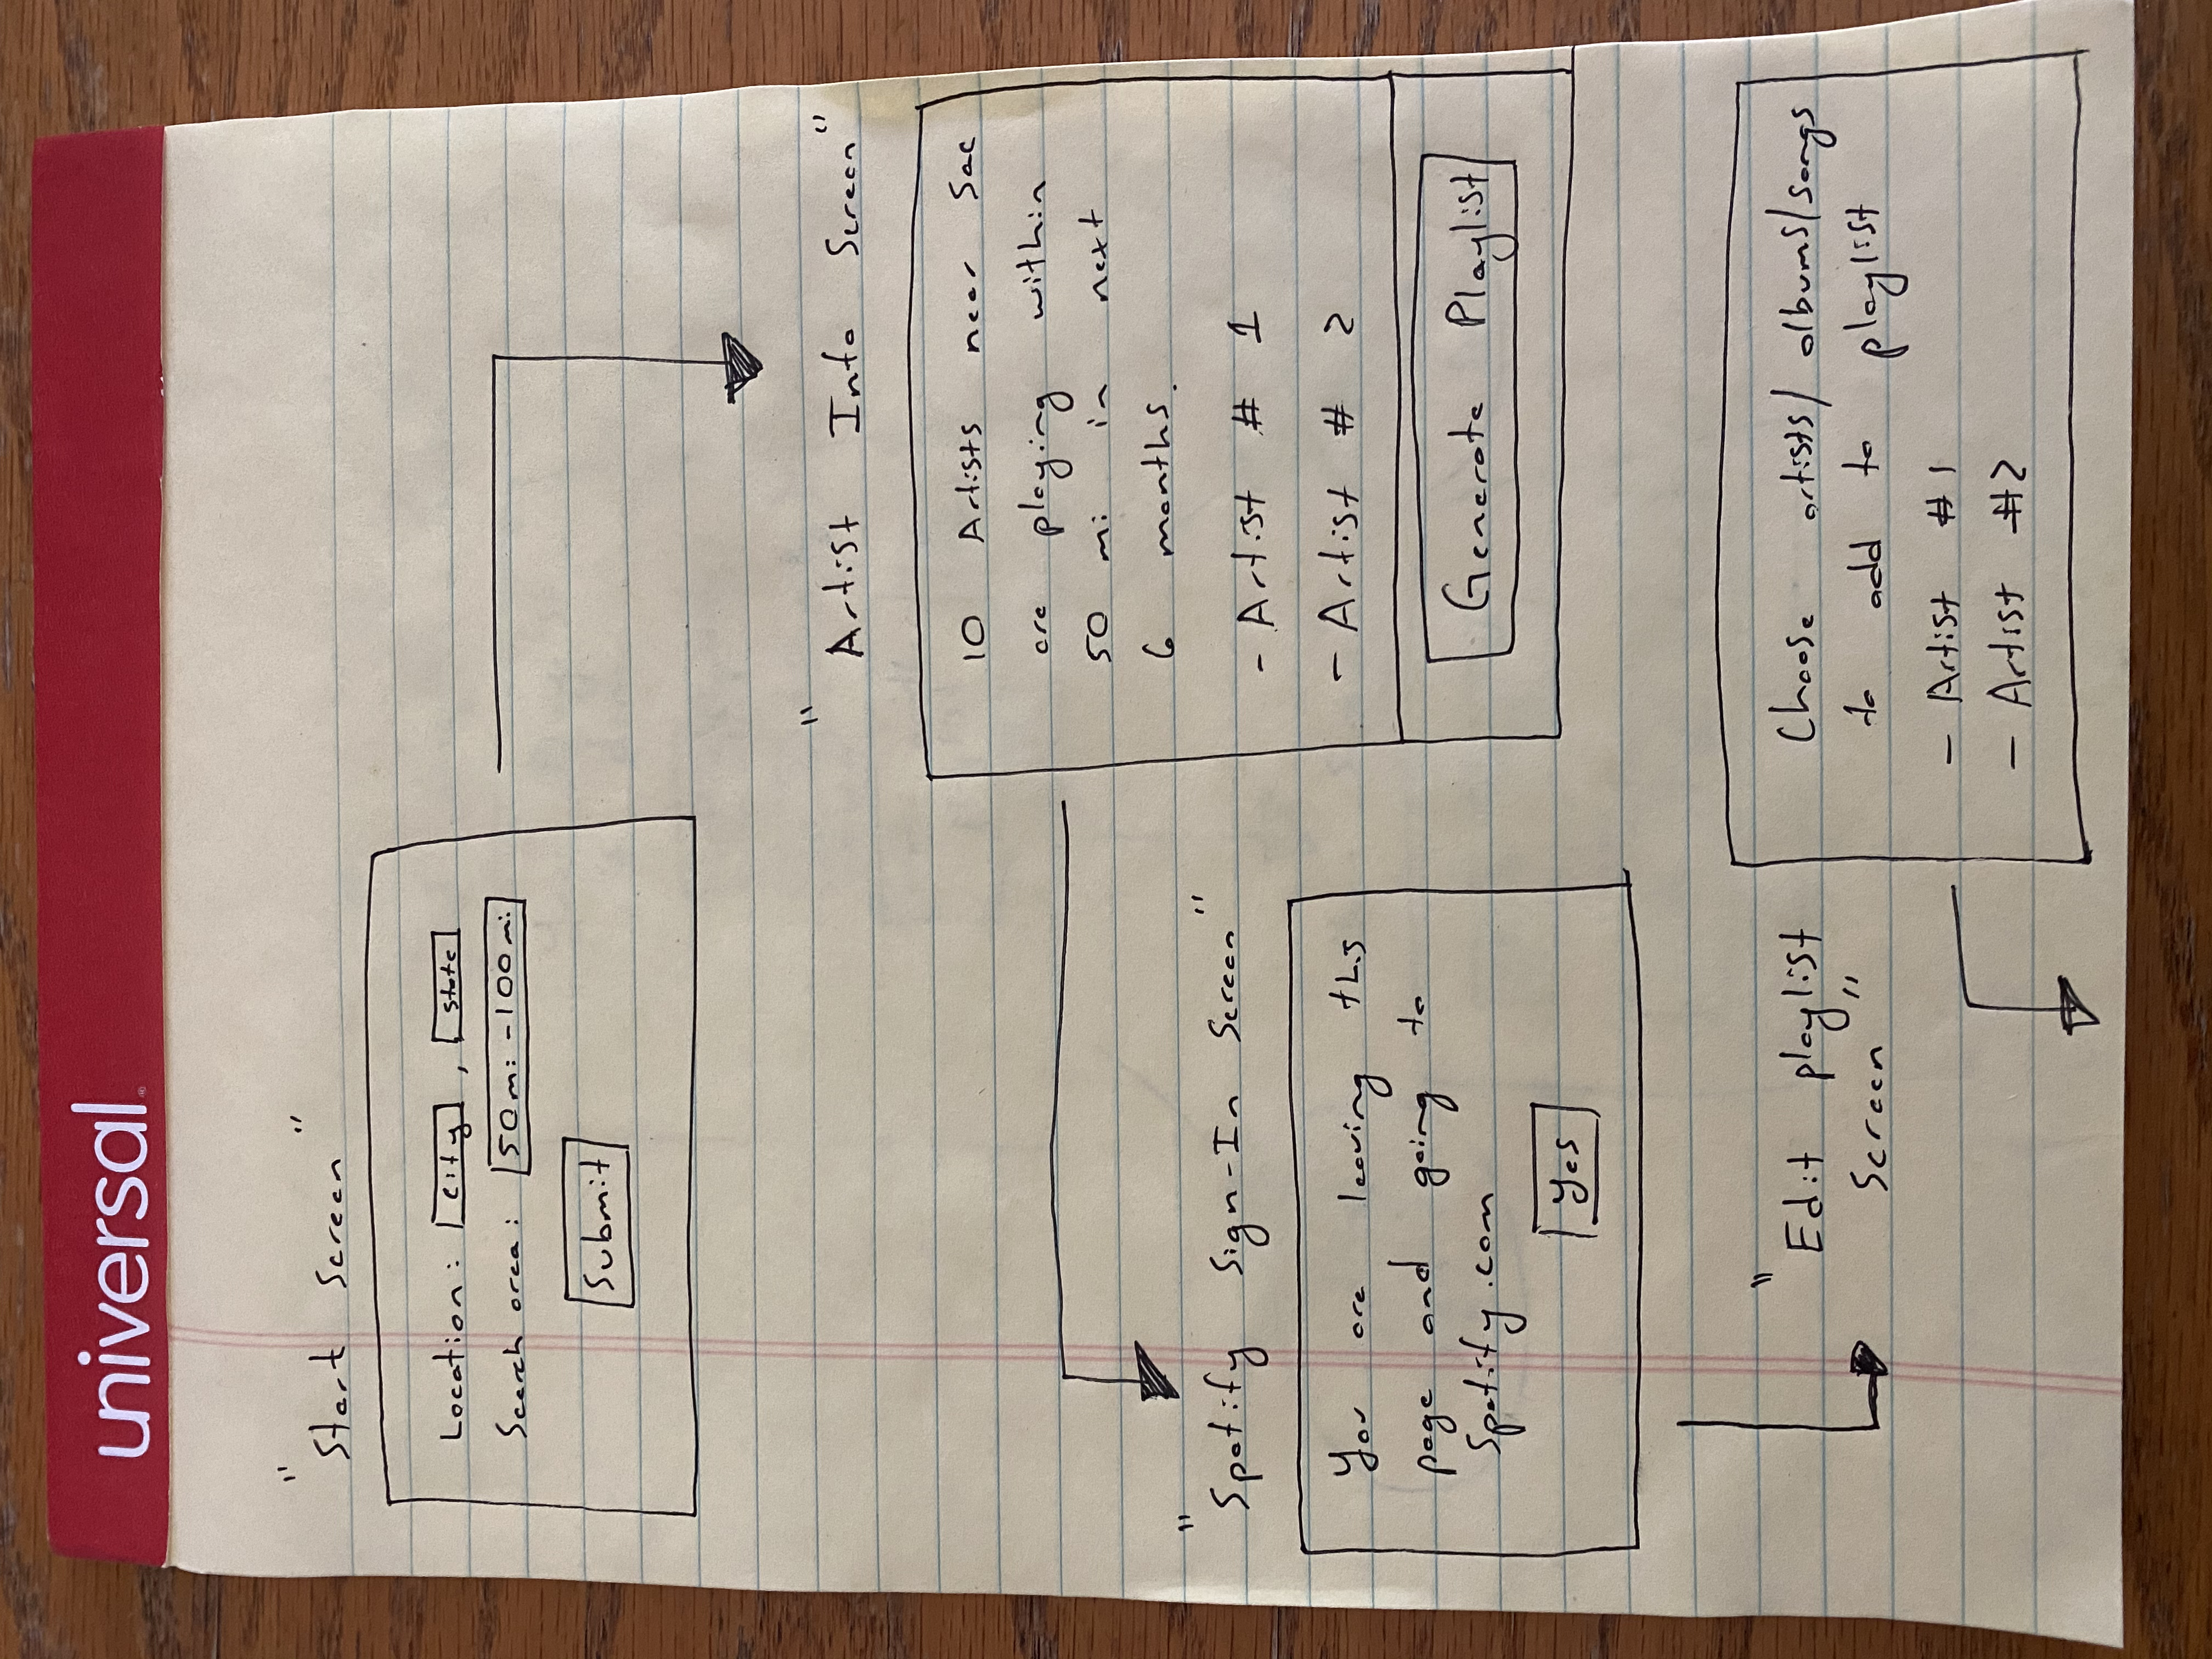 universal®
"Start Screen"
Location: City, State
Search area: 50mi - 100mi
Submit
"Artist Info Screen"
10 Artists near Sac
are playing within
50 mi in next
6 months.
- Artist # 1
- Artist # 2
Generate Playlist
"Spotify Sign-In Screen"
You are leaving this
page and going to
Spotify.com
Yes
"Edit playlist
Screen"
Choose artists/albums/songs
to add to playlist
- Artist #1
- Artist #2